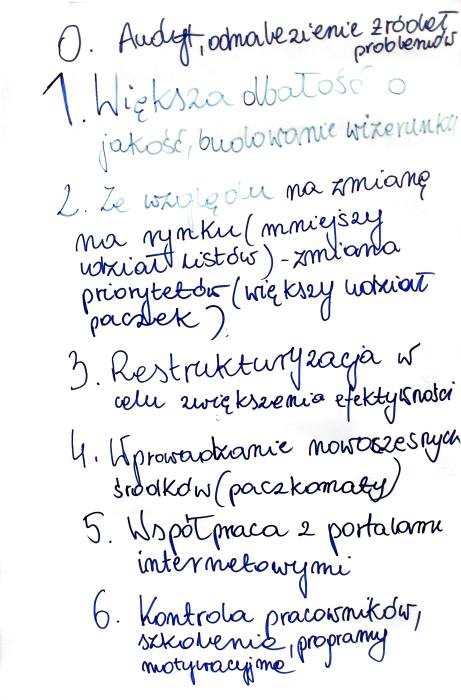 0. Audyt, odnalezienie źródeł
problemów
1. Większa dbałość o
jakość, budowanie wizerunku
2. Ze względu na zmianę
na rynku (mniejszy
udział listów) - zmiana
priorytetów (większy udział
paczek)
3. Restrukturyzacja w
celu zwiększenia efektywności
4. Wprowadzanie nowoczesnych
środków (paczkomaty)
5. Współpraca z portalami
internetowymi
6. Kontrola pracowników,
szkolenia, programy
motywacyjne